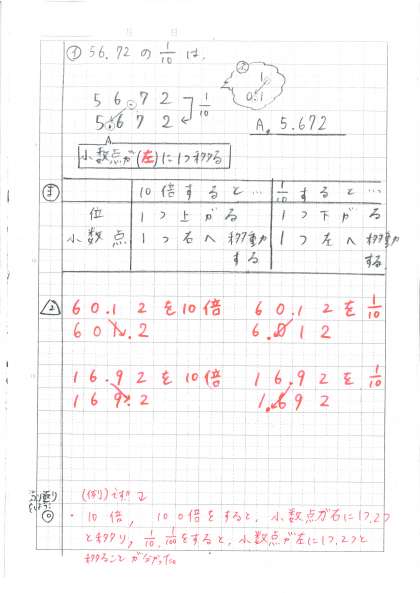 ① 56.72 の 1/10 は、
1
0.1
5 6 . 7 2
1/10
5 . 6 7 2
A. 5.672
小数点が(左)に1つ移る
ま
10倍すると… 1/10すると…
位 1つ上がる 1つ下がる
小数点 1つ右へ移動する 1つ左へ移動する
2
60.12を10倍 60.12を1/10
601.2 6.012
16.92を10倍 16.92を1/10
169.2 1.692
ふり返り
(例)
・10倍, 100倍をすると、小数点が右に1つ,2つ
と移り, 1/10, 1/100をすると、小数点が左に1つ,2つと
移ることが分かった。